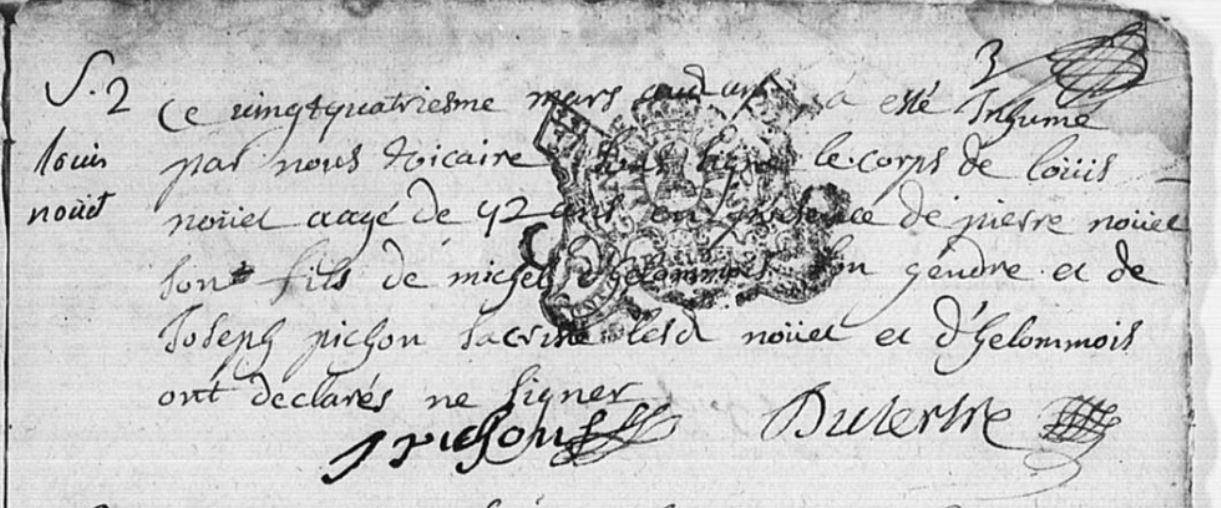 3
S. 2
Ce vingtquatriesme mars audit an a esté Inhumé
louis
par nous vicaire sous signé le corps de loüis
noüel
noüel aagé de 42 ans en presence de pierre noüel
son fils de michel d'helommois son gendre et de
Joseph pichon sacriste lesd noüel et d'helommois
ont declarés ne signer
J pichon Dutertre